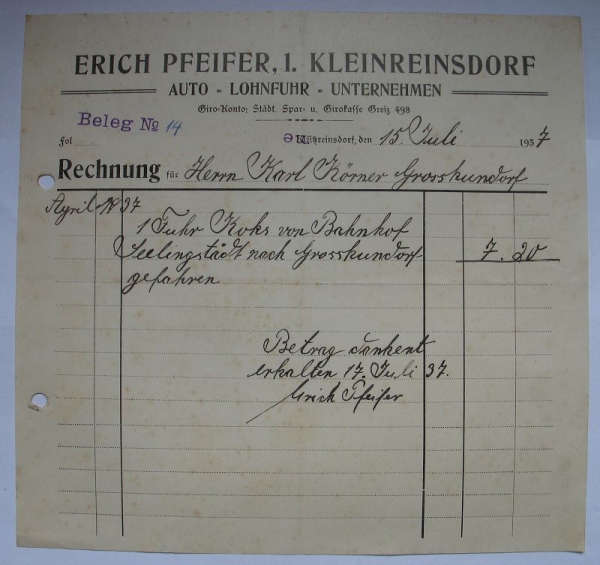 ERICH PFEIFER, 1. KLEINREINSDORF
AUTO - LOHNFUHR - UNTERNEHMEN
Giro-Konto: Städt. Spar- u. Girokasse Greiz 498
Beleg No 14
Fol
reinsdorf, den 15. Juli 1937
Rechnung für Herrn Karl Körner Grosskundorf
April 37
1 Fuhr Koks von Bahnhof
Seelingstädt nach Grosskundorf 7.20
gefahren
Betrag dankent
erhalten 17. Juli 37.
Erich Pfeifer